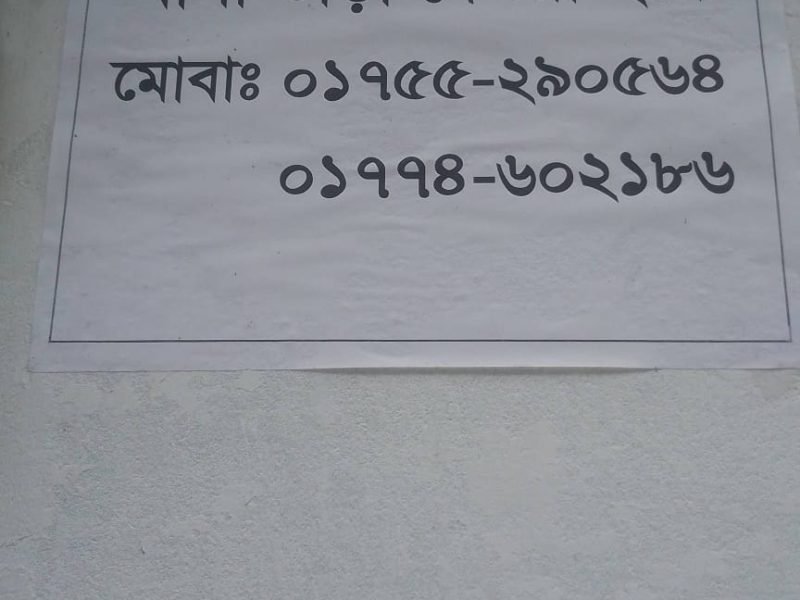 মোবাঃ ০১৭৫৫-২৯০৫৬৪
০১৭৭৪-৬০২১৮৬